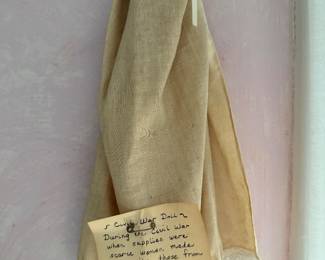 Civil War
During the Civil War
when supplies were
scarce women made
those from